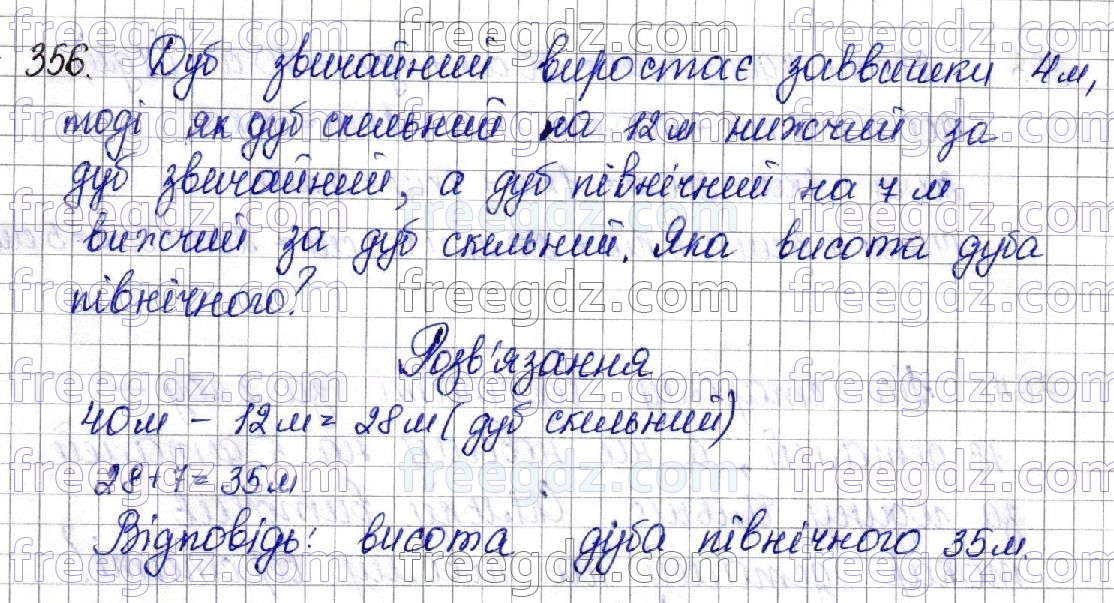 356. Дуб звичайний виростає заввишки 4м,
тоді як дуб скельний на 12м нижчий за
дуб звичайний, а дуб північний на 7 м
вижчий за дуб скельний. Яка висота дуба
північного?
Розв'язання
40м - 12м = 28м (дуб скельний)
28+7=35м
Відповідь: висота дуба північного 35м.
freegdz.com